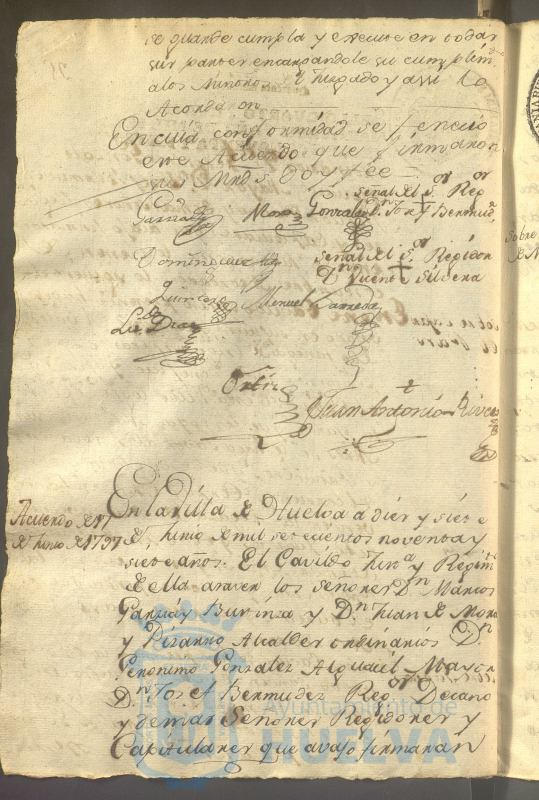 se guarde cumpla y execute en todas
sus partes encargandole su cumplim.to
a los Mnros. y assi lo
Acordaron
En cuia conformidad se fenecio
este Acuerdo que firmaron
sus Mrds. Doy fee
señal del S.or Reg.or
Garza Mora Gonzalez D.n Josef Bermud.z
Dominguez señal del S.or Regidor
D.n Vicente Silvera
Quintero Manuel
L.do Diaz
Ortiz
Juan Antonio Rivera
Acuerdo de 17
de Junio de 1797
En la Villa de Huelva a diez y siete
de Junio de mil setecientos noventa y
siete años. El Cavildo Just.a y Regim.to
de ella a saver los señores D.n Marcos
Garza y Burinza y D.n Juan de Mora
y Pizarro Alcaldes ordinarios D.n
Geronimo Gonzalez Alguacil Mayor
D.n Josef Bermudez Reg.or Decano
y demas Señores Regidores y
Capitulares que avajo firmaran
sobre
Ayuntamiento de
HUELVA